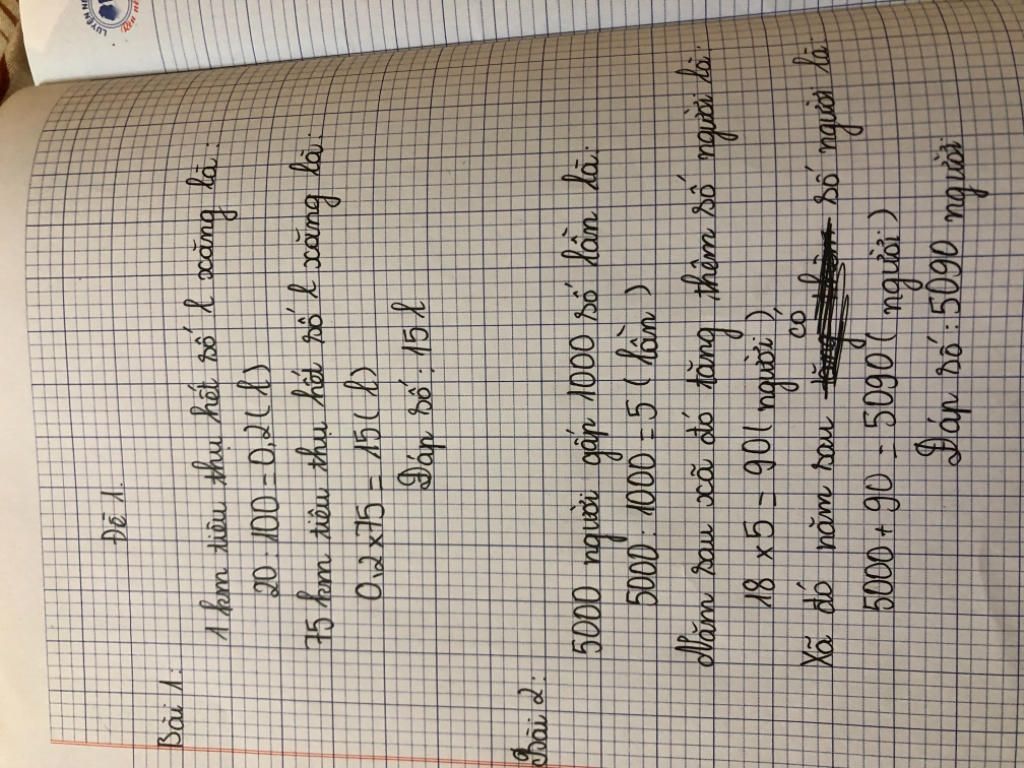 LUYỆN
Rèn nét
Đề 1.
Bài 1:
1 km tiêu thụ hết số l xăng là:
20 : 100 = 0,2 ( l )
75 km tiêu thụ hết số l xăng là:
0,2 x 75 = 15 ( l )
Đáp số : 15 l
Bài 2:
5000 người gấp 1000 số lần là:
5000 : 1000 = 5 ( lần )
Năm sau xã đó tăng thêm số người là:
18 x 5 = 90 ( người )
Xã đó năm sau có số người là
5000 + 90 = 5090 ( người )
Đáp số : 5090 người